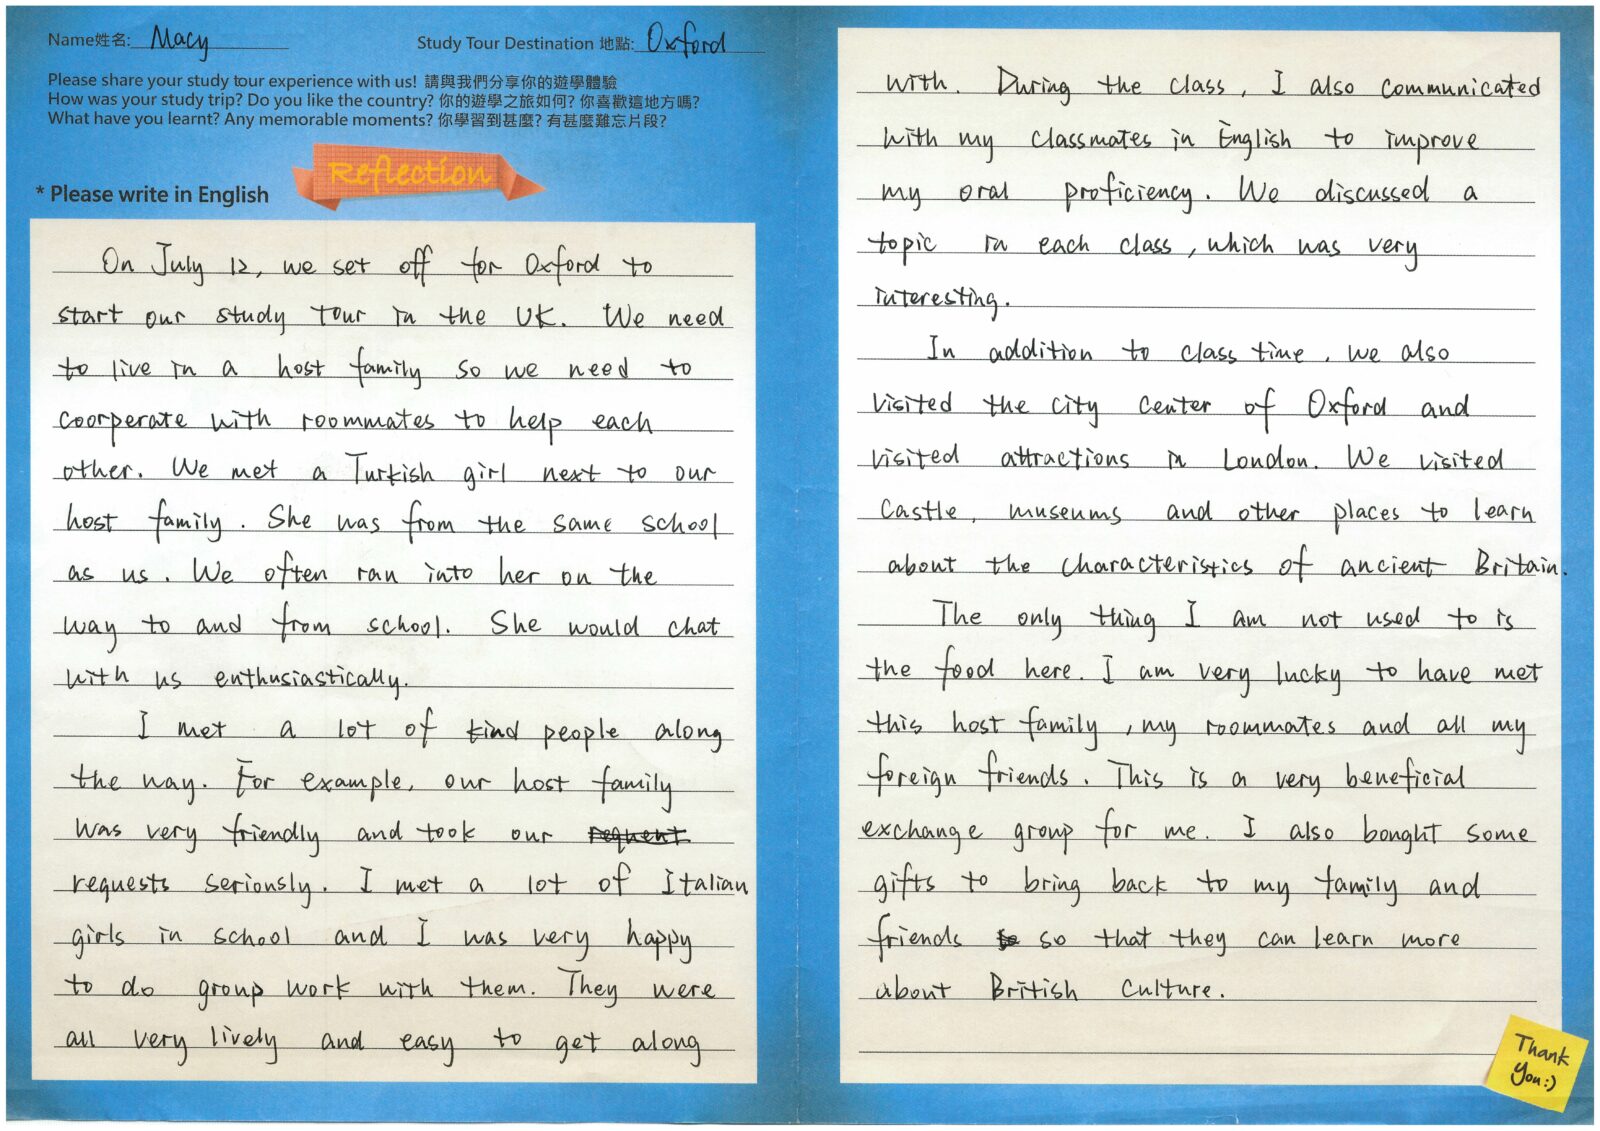 Name姓名: Macy
Study Tour Destination 地點: Oxford
Please share your study tour experience with us! 請與我們分享你的遊學體驗
How was your study trip? Do you like the country? 你的遊學之旅如何? 你喜歡這地方嗎?
What have you learnt? Any memorable moments? 你學習到甚麼? 有甚麼難忘片段?
Reflection
* Please write in English
On July 12, we set off for Oxford to
start our study tour in the UK. We need
to live in a host family so we need to
coorperate with roommates to help each
other. We met a Turkish girl next to our
host family. She was from the same school
as us. We often ran into her on the
way to and from school. She would chat
with us enthusiastically.
I met a lot of kind people along
the way. For example, our host family
was very friendly and took our request
requests seriously. I met a lot of Italian
girls in school and I was very happy
to do group work with them. They were
all very lively and easy to get along
with. During the class, I also communicated
with my classmates in English to improve
my oral proficiency. We discussed a
topic in each class, which was very
interesting.
In addition to class time, we also
visited the city center of Oxford and
visited attractions in London. We visited
castle, museums and other places to learn
about the characteristics of ancient Britain.
The only thing I am not used to is
the food here. I am very lucky to have met
this host family, my roommates and all my
foreign friends. This is a very beneficial
exchange group for me. I also bought some
gifts to bring back to my family and
friends so that they can learn more
about British culture.
Thank
You:)